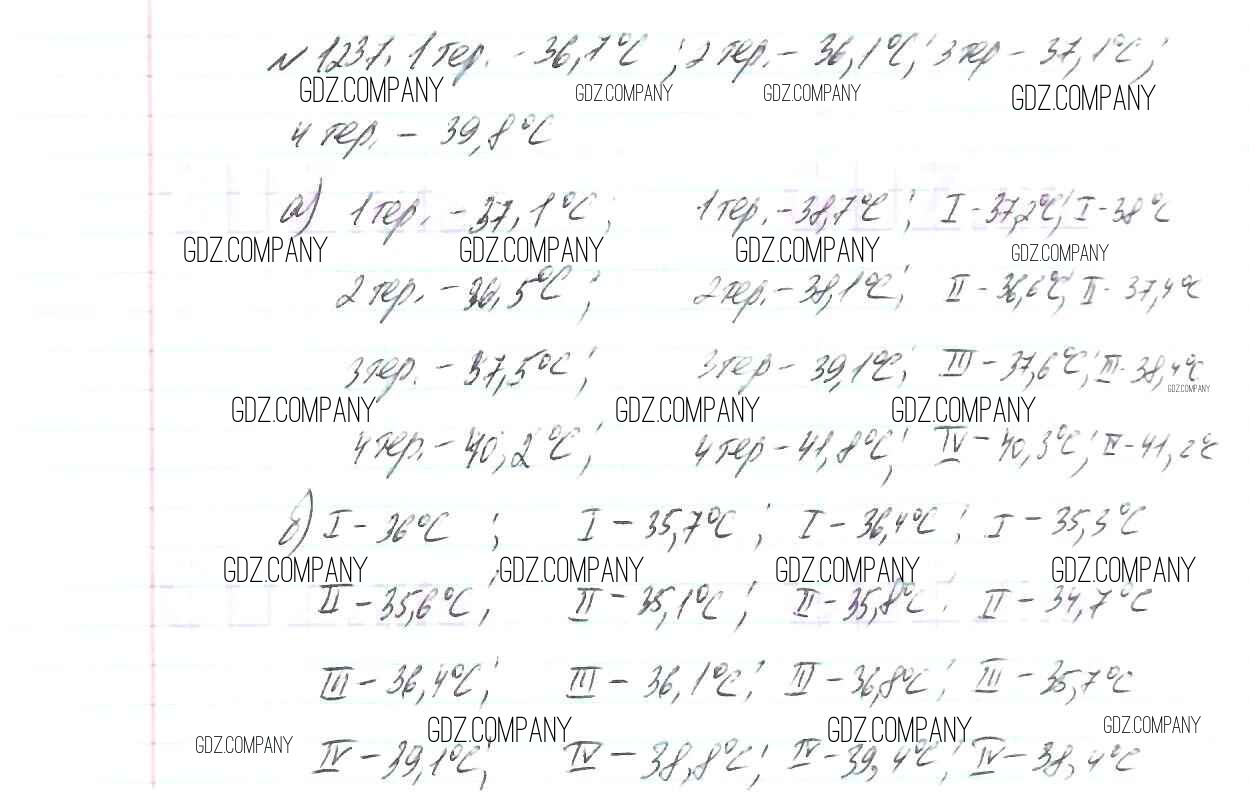 № 1237. 1 тер. - 36,7°C ; 2 тер. - 36,1°C; 3 тер - 37,1°C;
GDZ.COMPANY GDZ.COMPANY GDZ.COMPANY GDZ.COMPANY
4 тер. - 39,8°C
а) 1 тер. - 37,1°C; 1 тер. - 38,7°C; I - 37,2°C; I - 38°C
GDZ.COMPANY GDZ.COMPANY GDZ.COMPANY GDZ.COMPANY
2 тер. - 36,5°C; 2 тер. - 38,1°C; II - 36,6°C; II - 37,4°C
3 тер. - 37,5°C; 3 тер - 39,1°C; III - 37,6°C; III - 38,4°C
GDZ.COMPANY
GDZ.COMPANY GDZ.COMPANY GDZ.COMPANY
4 тер. - 40,2°C; 4 тер - 41,8°C; IV - 40,3°C; IV - 41,2°C
б) I - 36°C ; I - 35,7°C ; I - 36,4°C ; I - 35,3°C
GDZ.COMPANY GDZ.COMPANY GDZ.COMPANY GDZ.COMPANY
II - 35,6°C; II - 35,1°C; II - 35,8°C. II - 34,7°C
III - 36,4°C; III - 36,1°C; III - 36,8°C; III - 35,7°C
GDZ.COMPANY GDZ.COMPANY GDZ.COMPANY
GDZ.COMPANY
IV - 39,1°C; IV - 38,8°C; IV - 39,4°C; IV - 38,4°C